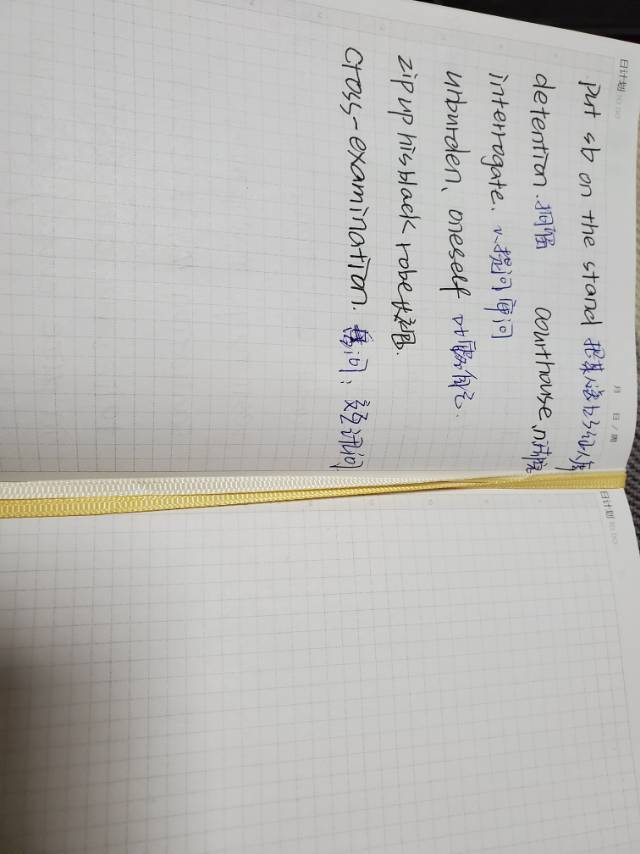 日计划
月 日/期
put sb on the stand 把某人送上证人席
detention. 拘留 courthouse. n 法院
interrogate. v. 提问 审问
unburden, oneself 吐露自己.
zip up his black robe 长袍.
cross-examination. 盘问; 交互讯问
日计划